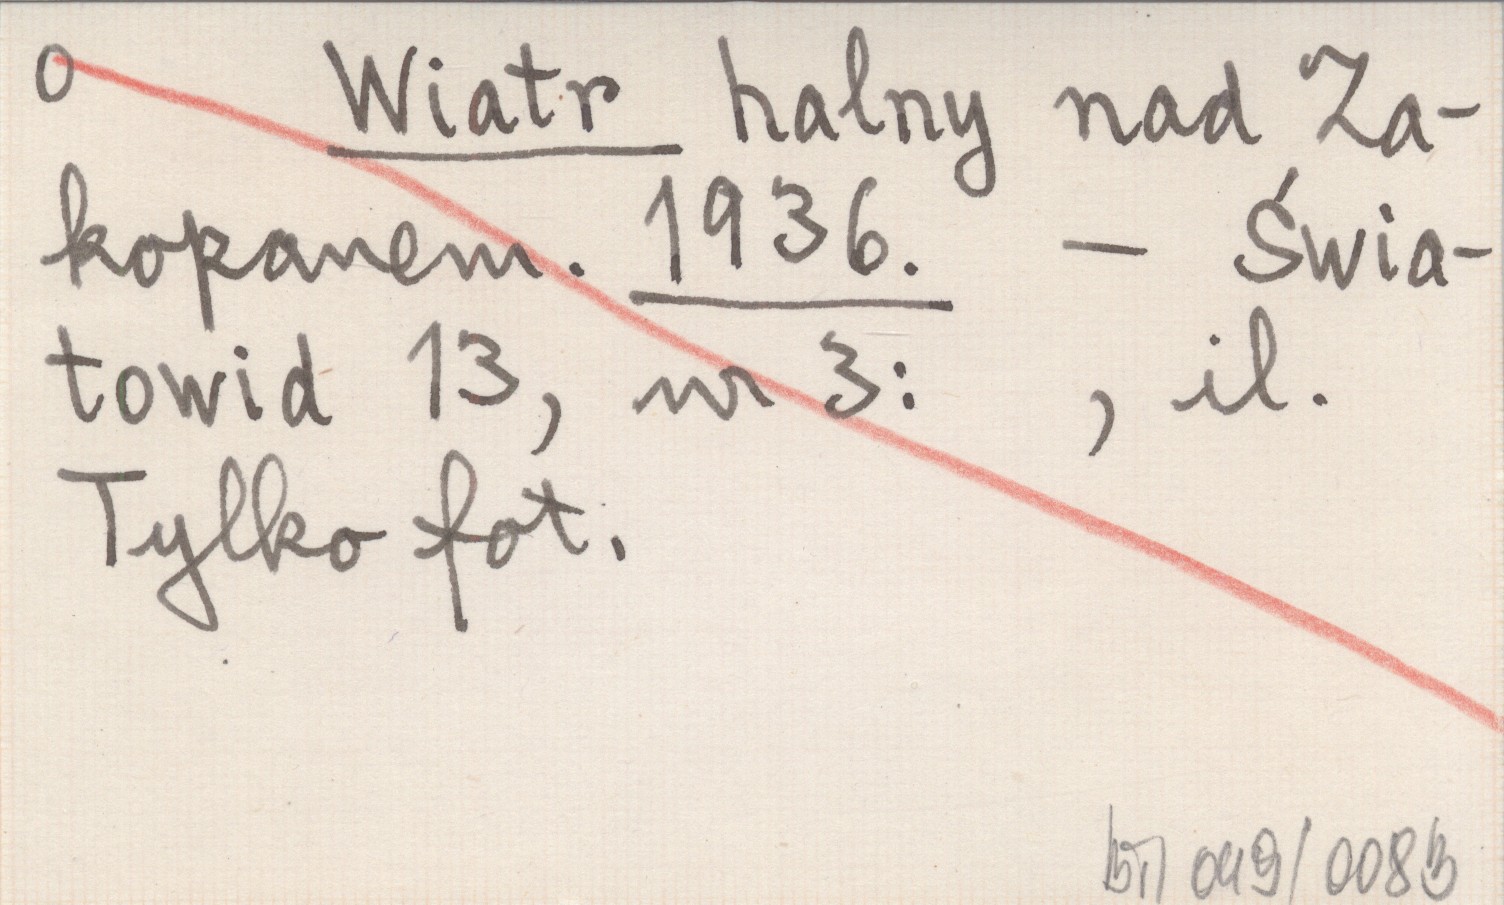 0 Wiatr halny nad Za-
kopanem. 1936. — Świa-
towid 13, nr 3: , il.
Tylko fot.
049/0083